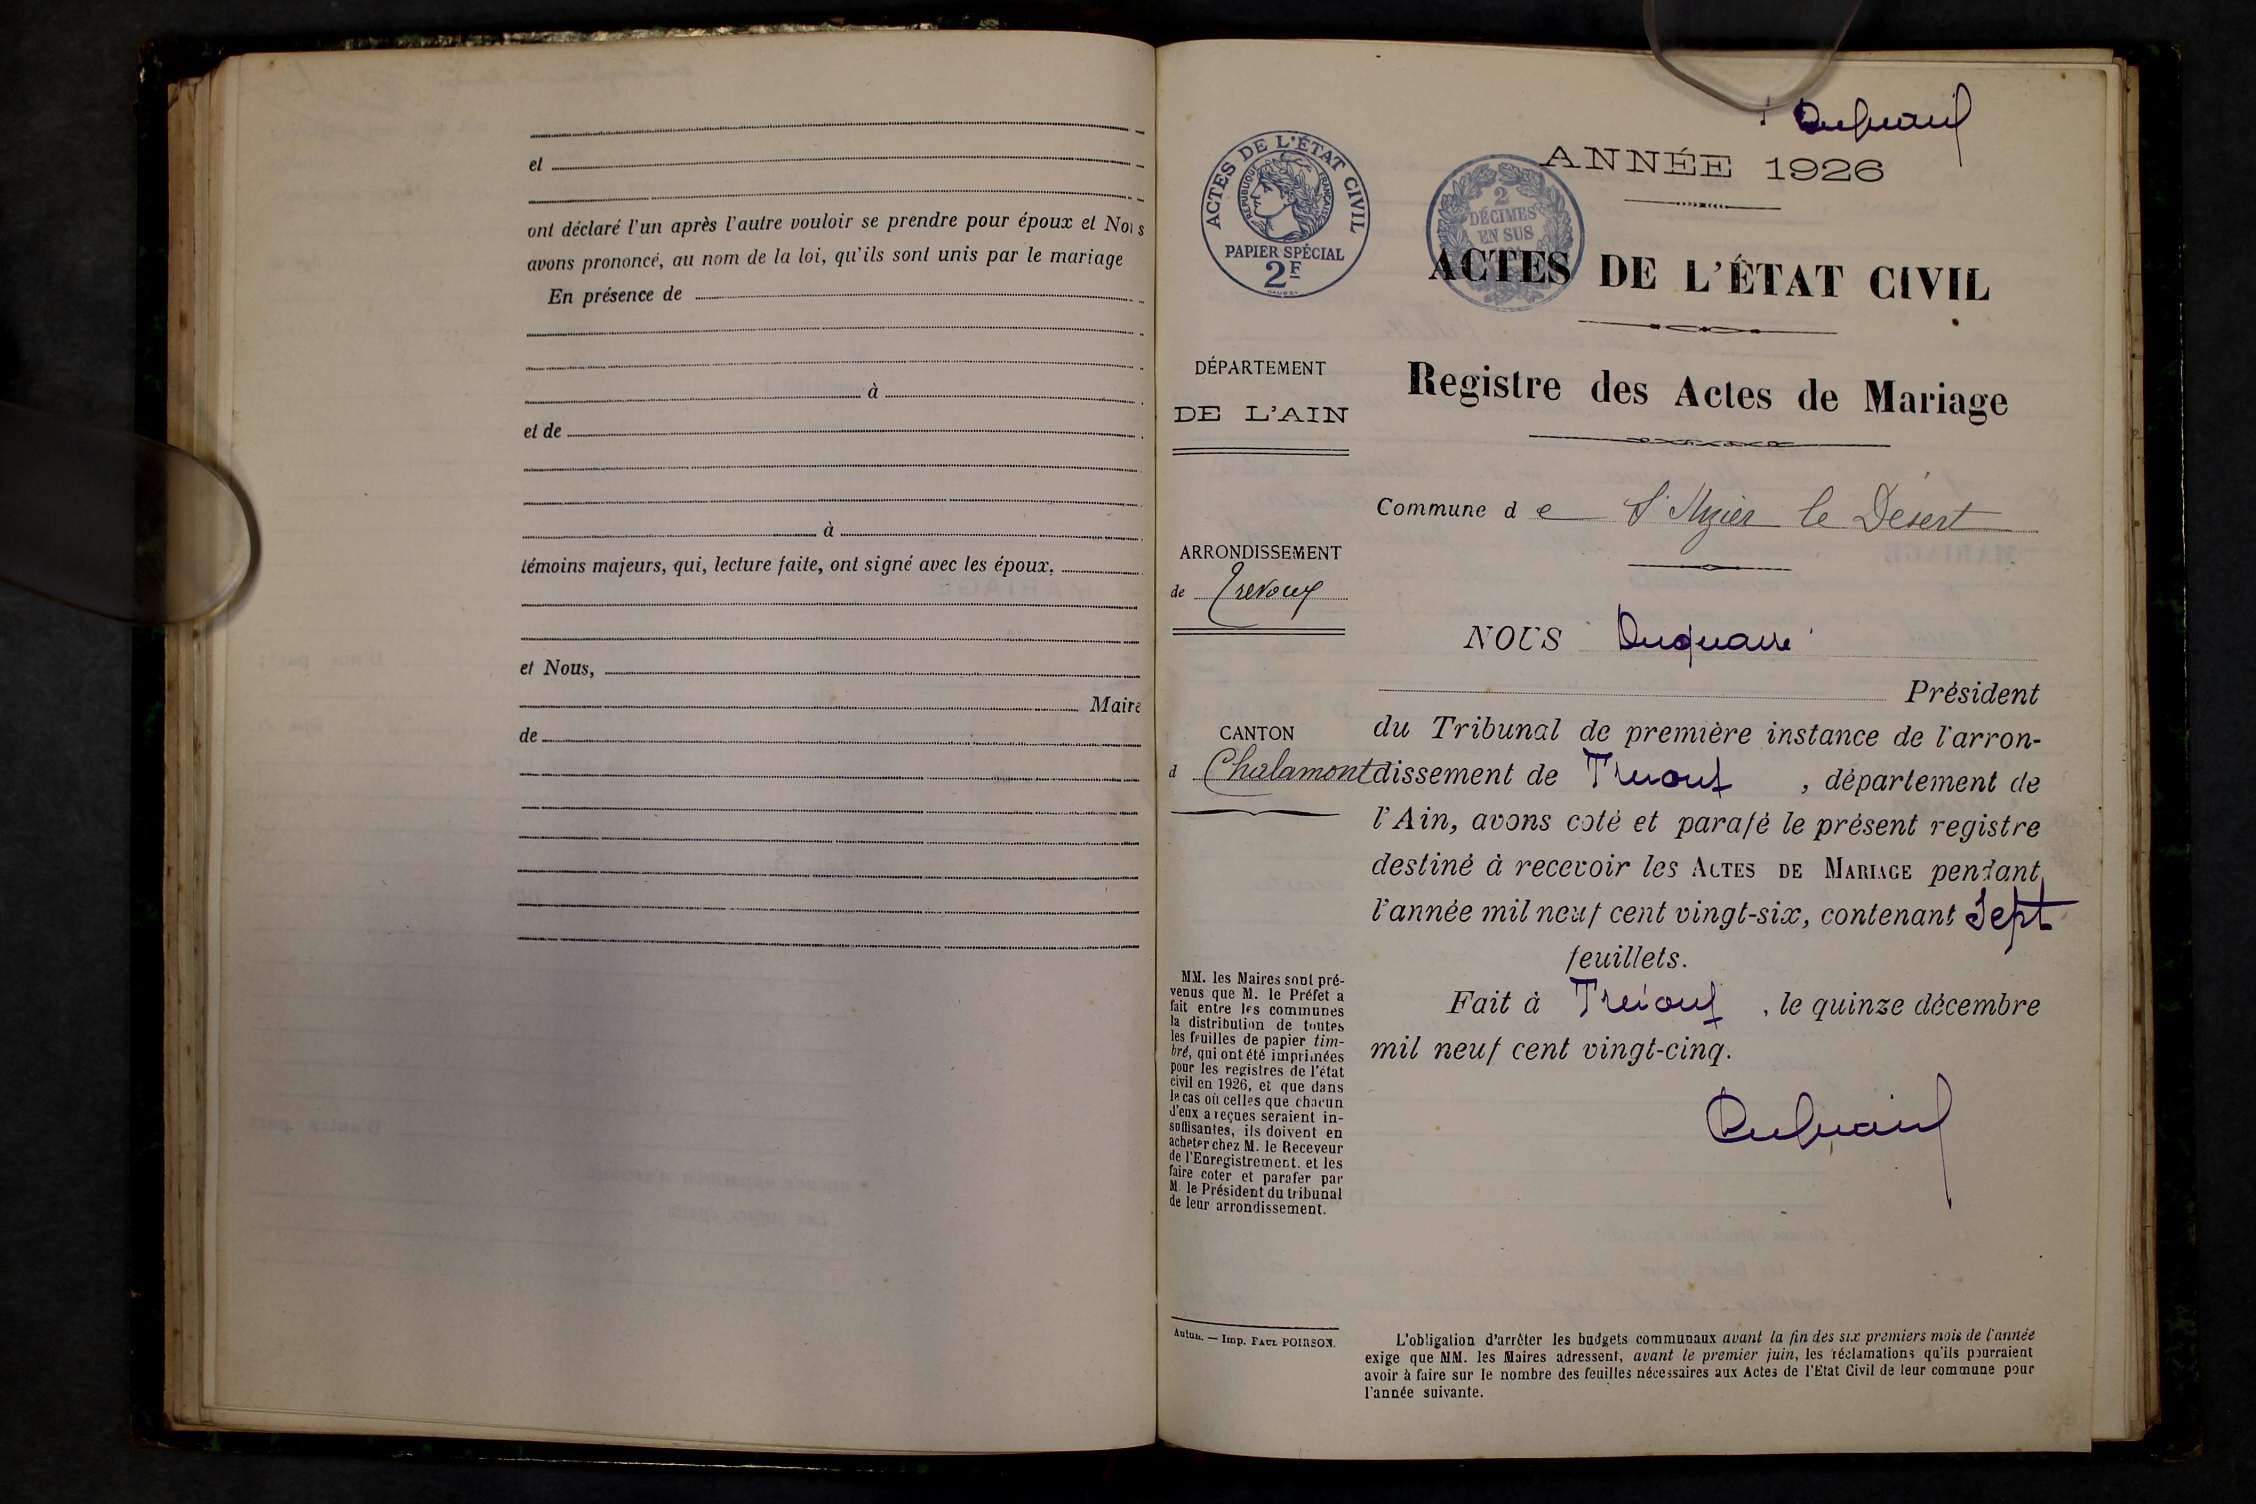 et
ont déclaré l'un après l'autre vouloir se prendre pour époux et Nous
avons prononcé, au nom de la loi, qu'ils sont unis par le mariage
En présence de
à
et de
à
témoins majeurs, qui, lecture faite, ont signé avec les époux.
et Nous,
Maire
de
ACTES DE L'ÉTAT CIVIL
RÉPUBLIQUE FRANÇAISE
PAPIER SPÉCIAL
2F
2
DÉCIMES
EN SUS
ANNÉE 1926
ACTES DE L'ÉTAT CIVIL
Registre des Actes de Mariage
DÉPARTEMENT
DE L'AIN
ARRONDISSEMENT
de Trévoux
CANTON
d Chalamont
MM. les Maires sont pré-
venus que M. le Préfet a
fait entre les communes
la distribution de toutes
les feuilles de papier tim-
bré, qui ont été imprimées
pour les registres de l'état
civil en 1926, et que dans
le cas où celles que chacun
d'eux a reçues seraient in-
suffisantes, ils doivent en
acheter chez M. le Receveur
de l'Enregistrement. et les
faire coter et parafer par
M. le Président du tribunal
de leur arrondissement.
Autun. — Imp. PAUL POIRSON.
Commune d e St Nizier le Désert
NOUS Duquaire
Président
du Tribunal de première instance de l'arron-
dissement de Trevoux , département de
l'Ain, avons coté et parafé le présent registre
destiné à recevoir les ACTES DE MARIAGE pendant
l'année mil neuf cent vingt-six, contenant Sept
feuillets.
Fait à Trévoux , le quinze décembre
mil neuf cent vingt-cinq.
L'obligation d'arrêter les budgets communaux avant la fin des six premiers mois de l'année
exige que MM. les Maires adressent, avant le premier juin, les réclamations qu'ils pourraient
avoir à faire sur le nombre des feuilles nécessaires aux Actes de l'Etat Civil de leur commune pour
l'année suivante.